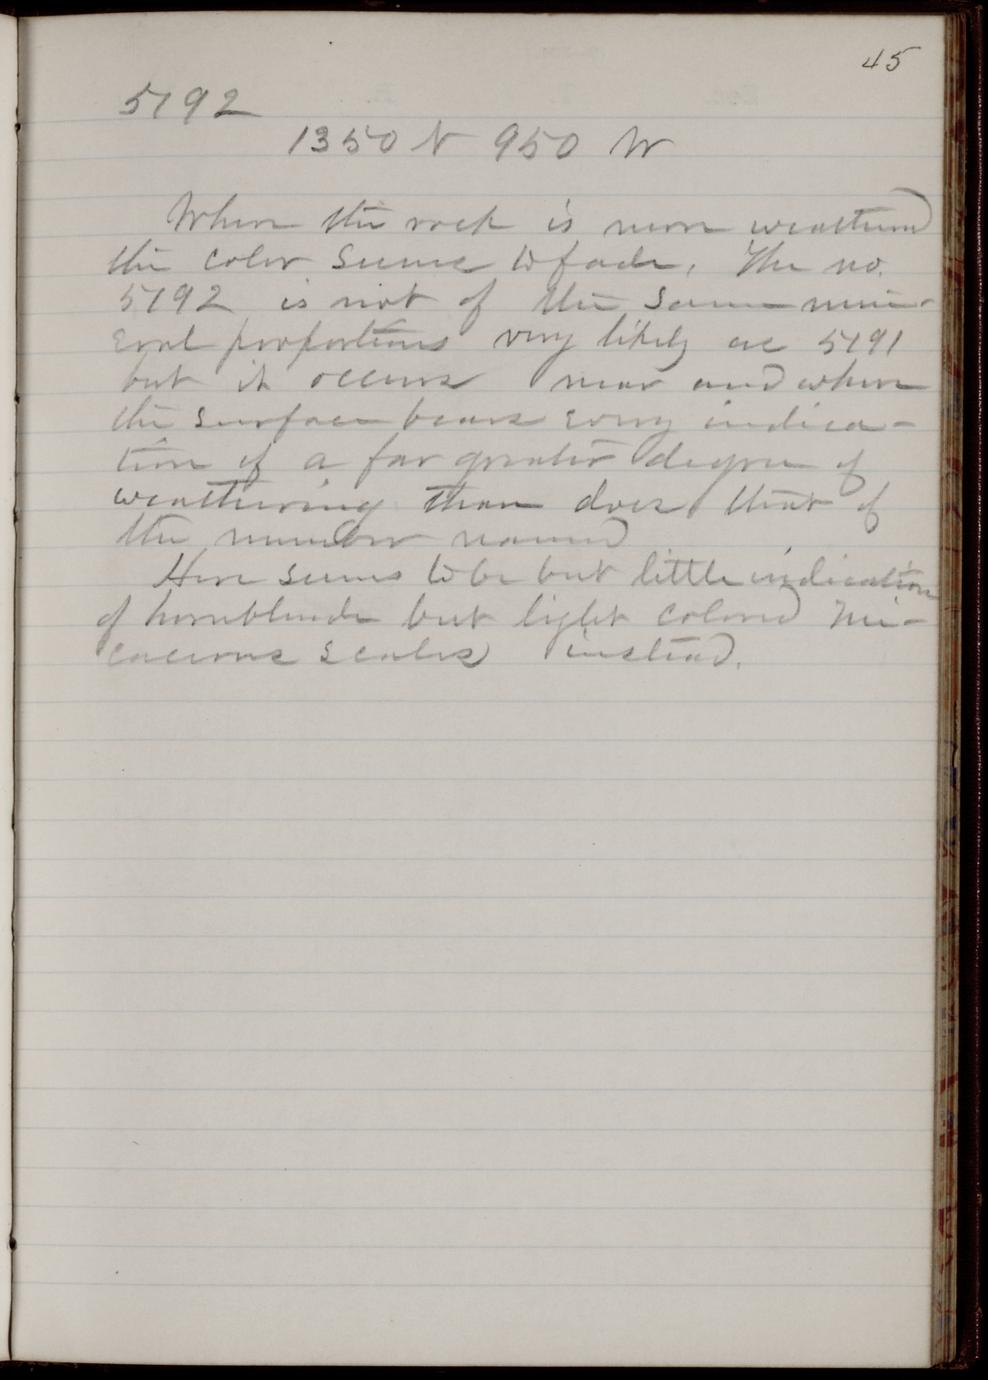 45
5192
1350 N 950 W
Where the rock is more weathered
the color seems to fade. The no.
5192 is not of the same min-
eral proportions very likely as 5191
but it occurs near and where
the surface bears every indica-
tion of a far greater degree of
weathering than does that of
the number named
Here seems to be but little indication
of hornblende but light colored mi-
cacious scales instead.